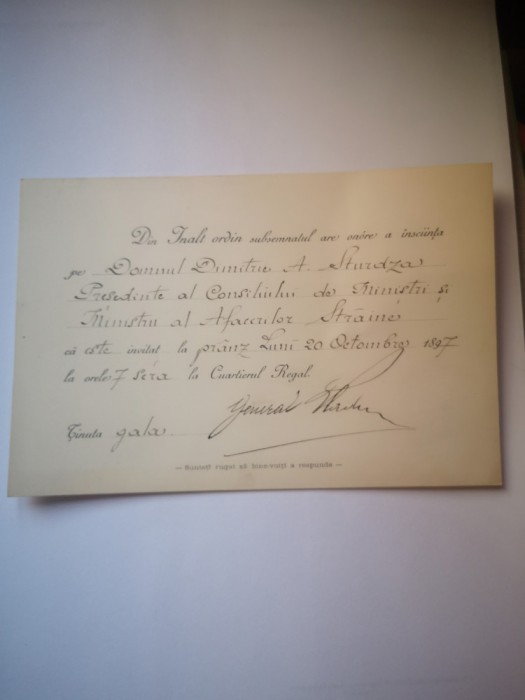 Din Inalt ordin subsemnatul are onóre a însciința
pe Domnul Dumitrie A. Sturdza
Presedinte al Consiliului de Ministri si
Ministru al Afacerilor Străine
că este invitat la prânz Luni 20 Octombre 1897
la orele 7 séra la Cuartierul Regal.
General
Ținuta gala
— Sunteți rugat să bine-voiți a respunde —